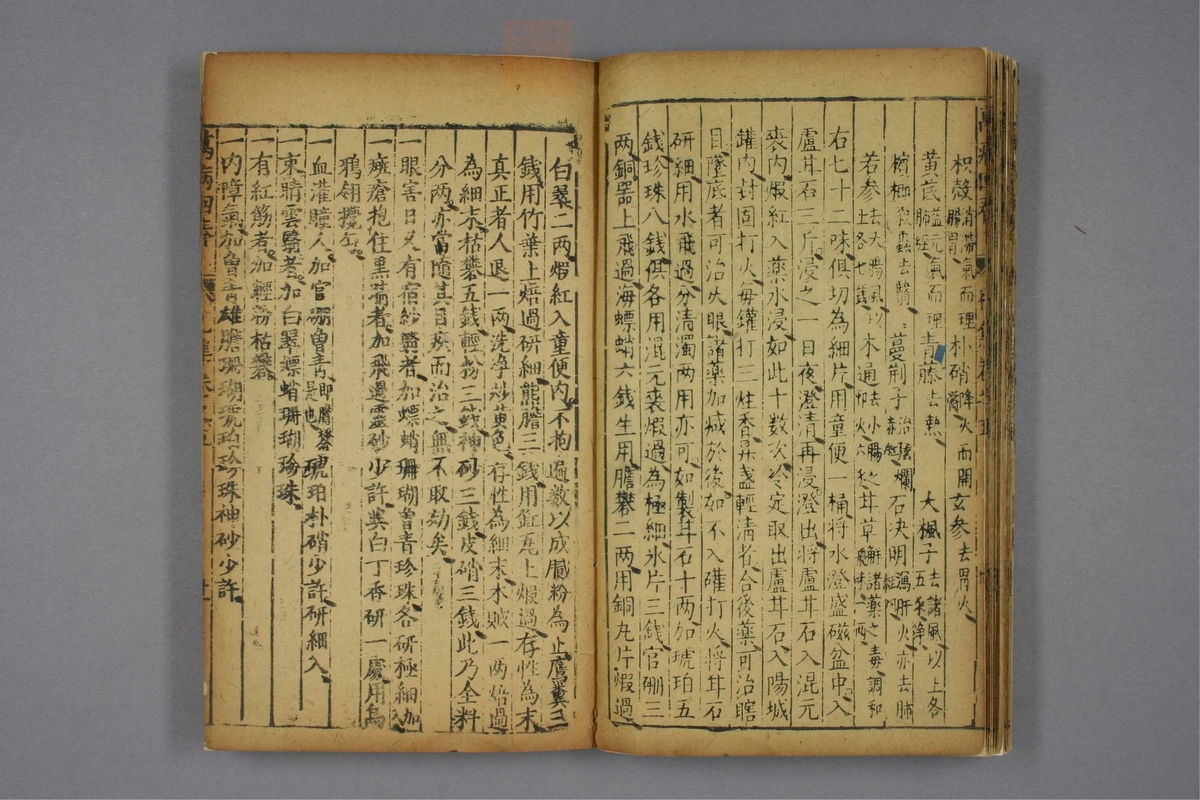 枳殼消滯氣而理腸胃 朴硝降火而開滯 玄參去胃火
黃芪益元氣而理肺經 青藤去熱 大楓子去諸風以上各五錢淨
檳榔殺蟲去翳 蔓荆子治弦爛赤 石決明瀉肝火亦去肺經
苦參去大腸風以上各七錢 木通去小腸火 甘草解諸藥之毒調和衆味一兩
右七十二味俱切為細片用童便一桶將水澄盛磁盆中入
盧甘石三斤浸之一日夜澄清再浸澄出將盧甘石入混元
衮内煅紅入藥水浸如此十數次冷定取出盧甘石入陽城
罐内封固打火每罐打三炷香昇盞輕清者合後藥可治瞎
目墜底者可治火眼諸藥加減於後如不入礶打火將甘石
研細用水飛過分清濁兩用亦可如製甘石十兩加琥珀五
錢珍珠八錢俱各用混元衮煅過為極細氷片三錢官硼三
兩銅器上飛過海螵蛸六錢生用膽礬二兩用銅丸片煅過
白翠二兩煅紅入童便内不拘遍數以成膩粉為止鷹糞三
錢用竹葉上焙過研細熊膽三錢用缸瓦上煅過存性為末
真正者人退一兩洗淨炒黃色存性為細末木賊一兩焙過
為細末枯礬五錢輕粉二錢神砂三錢皮硝三錢此乃全料
分兩亦當隨其目疾而治之無不取効矣
一眼害日久有宿紗翳者加螵蛸珊瑚曾青珍珠各研極細加
一斑瘡抱住黑菊者加飛過靈砂少許共白丁香研一處用烏
鴉翎攪勻
一血灌瞳人加官硼曾青即膽礬是也琥珀朴硝少許研細入
一束睛雲翳者加白翠螵蛸珊瑚珍珠
一有紅筋者加輕粉枯礬
一内障氣加曾青雄膽珊瑚琥珀珍珠神砂少許
萬病回春